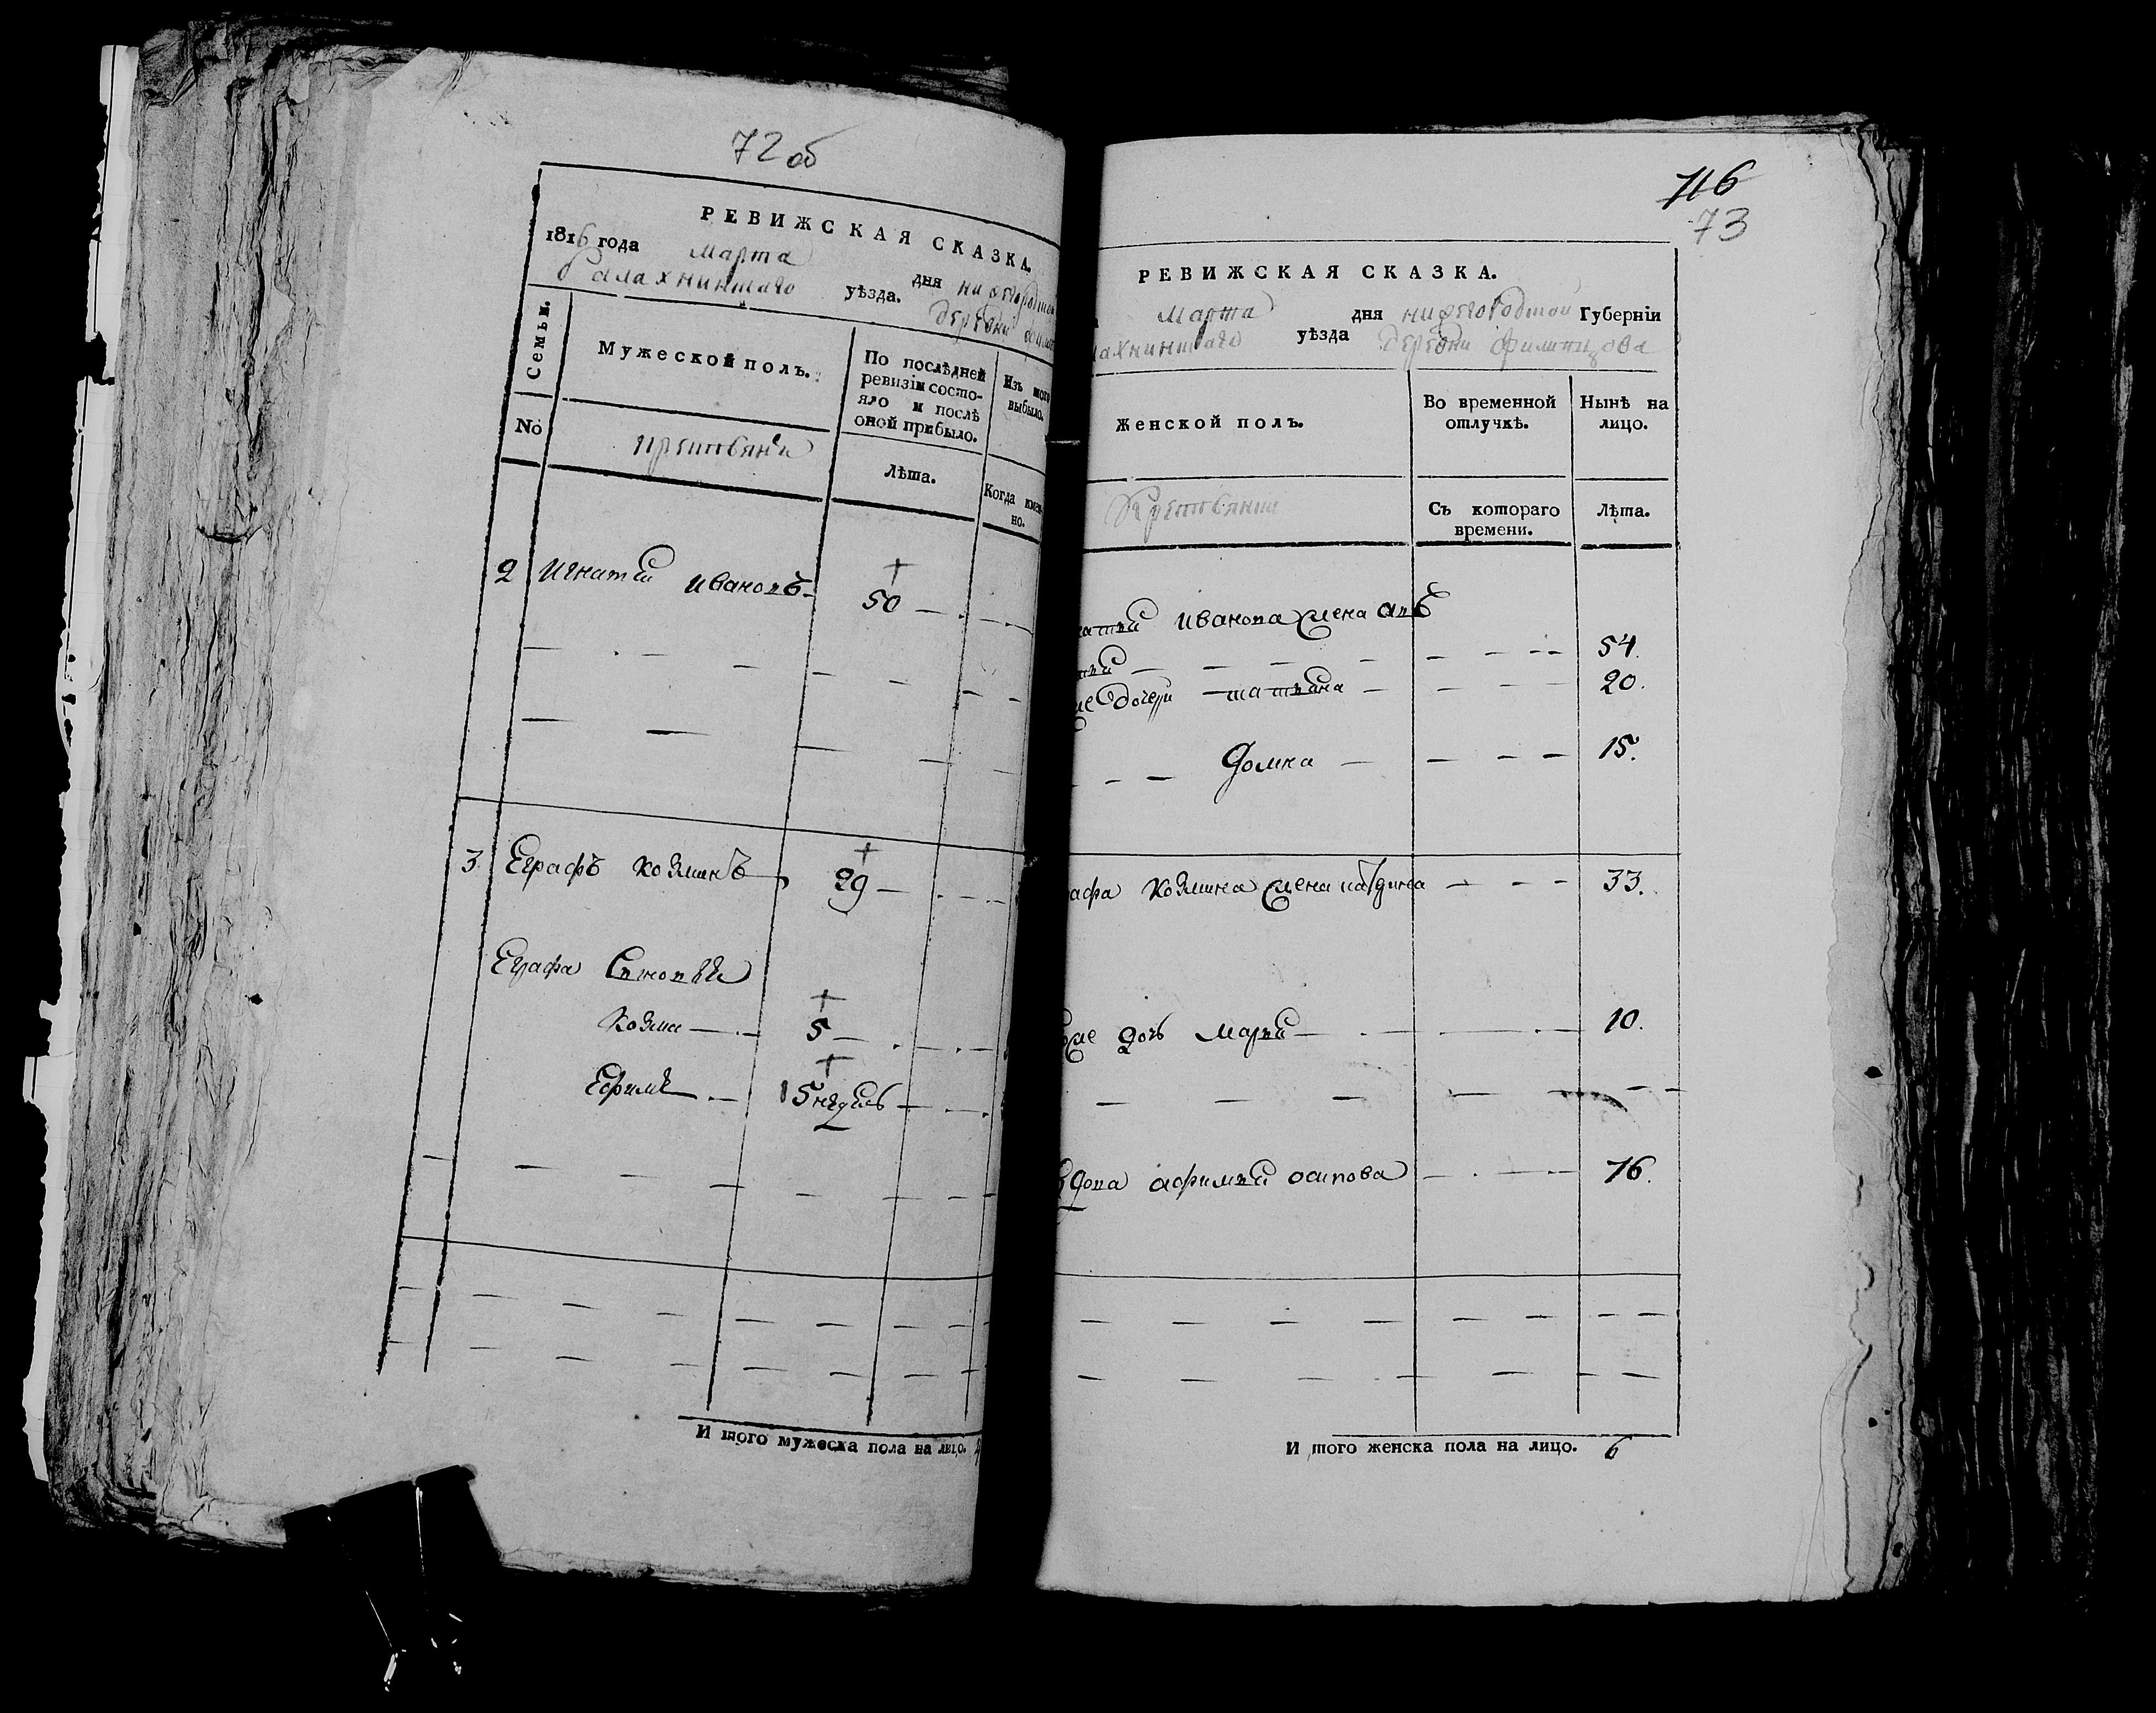 72 об
РЕВИЖСКАЯ СКАЗКА.
1816 года марта дня нижегородской
балахнинскаго уѣзда. деревни
Семьи.
Мужеской полъ.
По послѣдней ревизіи состо-
яло и послѣ
оной прибыло.
Изъ того
выбыло.
No
крестьяне
Лѣта.
Когда имен-
но.
2 Игнатей Ивановъ 50
3 Еграфъ Козминъ 29
Еграфа сыновья
Козма 5
Ефимъ 15 недель
И того мужеска пола на лицо.
116
73
РЕВИЖСКАЯ СКАЗКА.
марта дня нижегородской Губерніи
уѣзда деревни
Женской полъ.
Во временной
отлучкѣ.
Нынѣ на
лицо.
крестьянки
Съ котораго
времени.
Лѣта.
Иванова жена
54.
дочери татьяна 20.
Домна 15.
Козмина жена 33.
дочь Марья 10.
вдова афимья осипова 76.
И того женска пола на лицо. 6